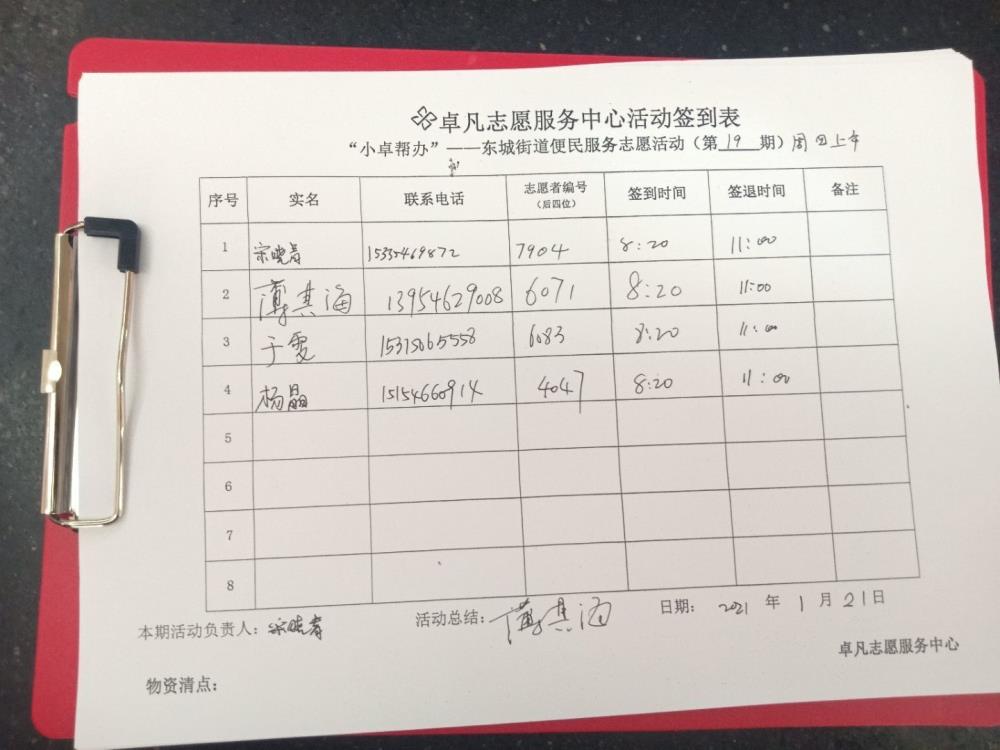 卓凡志愿服务中心活动签到表
“小卓帮办”——东城街道便民服务志愿活动（第19期）周四上午
序号 实名 联系电话 志愿者编号（后四位） 签到时间 签退时间 备注
1 宋晓青 15335469872 7904 8:20 11:00
2 薄其海 13954629008 6071 8:20 11:00
3 于雯 15315065558 6083 8:20 11:00
4 杨晶 15154660914 4047 8:20 11:00
5
6
7
8
本期活动负责人：宋晓青 活动总结：薄其海 日期：2021年1月21日
卓凡志愿服务中心
物资清点：